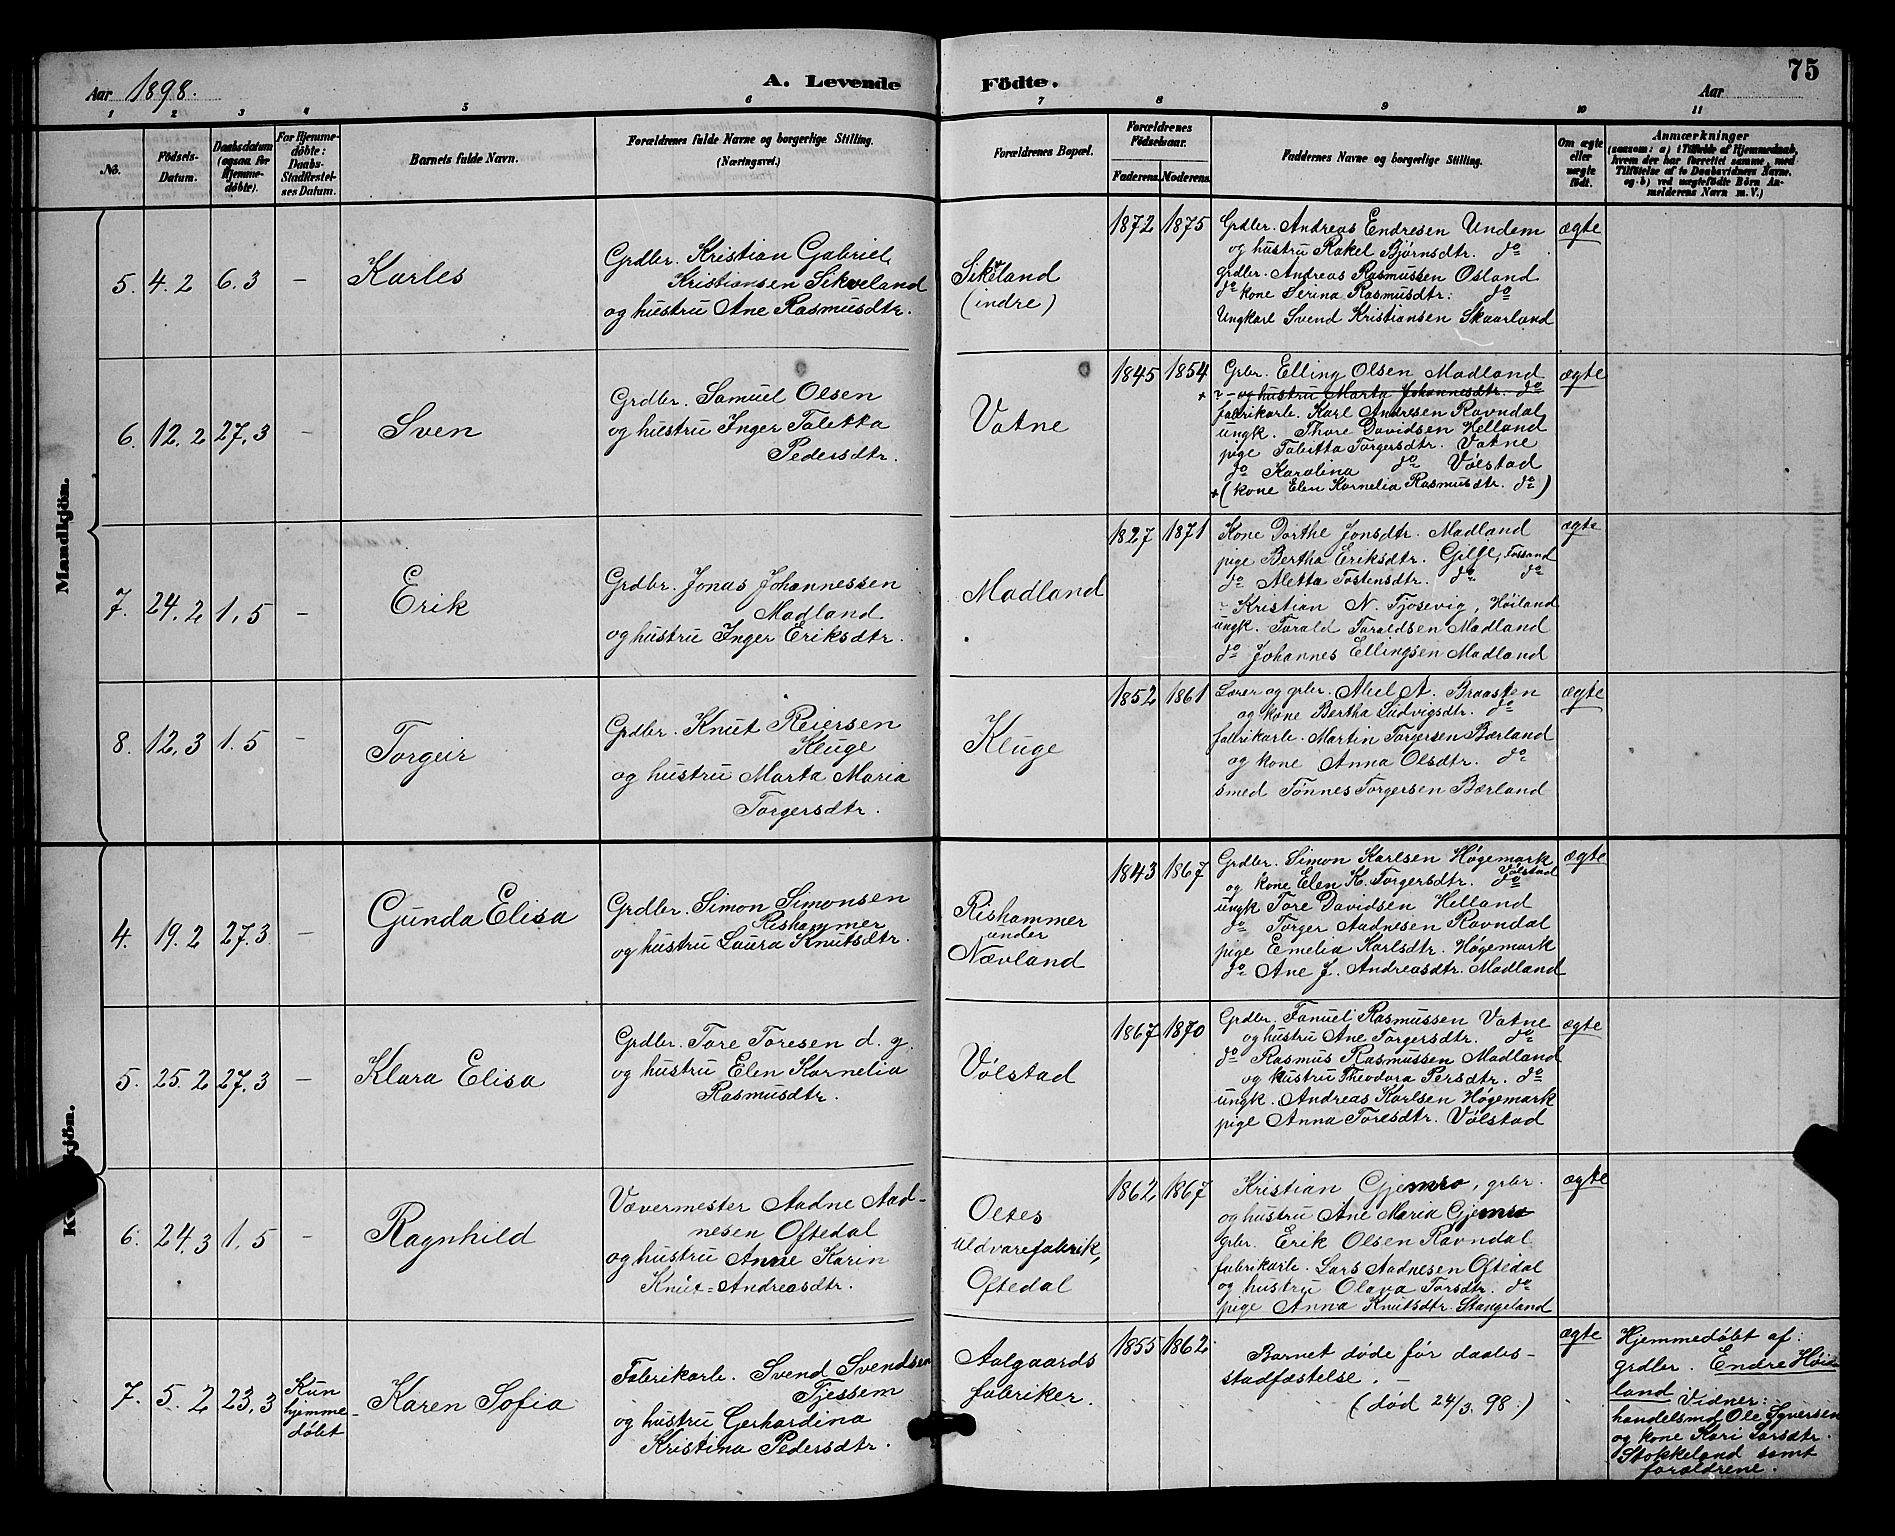 75
Aar 1898.
A. Levende Födte.
Aar
1 2 3 4 5 6 7 8 9 10 11
No.
Födsels-
Datum.
Daabsdatum
(ogsaa for
Hjemme-
døbte).
For Hjemme-
døbte:
Daabs-
Stadfæstel-
ses Datum.
Barnets fulde Navn.
Forældrenes fulde Navne og borgerlige Stilling.
(Næringsvei.)
Forældrenes Bopæl.
Forældrenes
Födselsaar.
Faderens. Moderens.
Faddernes Navne og borgerlige Stilling.
Om ægte
eller
uægte
født.
Anmærkninger
(saasom: a) i Tilfælde af Hjemmedaab,
hvem der har forrettet samme, med
Tilföielse af to Daabsvidners Navne.
og b) ved uægtefödte Börn An-
melderens Navn m. V.)
Mandkjön.
5. 4.2 6.3 –
Karles
Grdbr. Kristian Gabriel
Kristiansen Sikveland
og hustru Ane Rasmusdtr.
Sikveland
(indre)
1872 1875
Grdbr. Andreas Endresen Undem
og hustru Rakel Bjørnsdtr. do
grdbr. Andreas Rasmussen Osland
do kone Serina Rasmusdtr: do
Ungkarl Svend Kristiansen Skaarland
ægte
6. 12.2 27.3 –
Sven
Grdbr. Samuel Olsen
og hustru Inger Taletta
Pedersdtr.
Vatne
1845 1854
Grbr. Elling Olsen Madland
+ ~ og hustru Marta Johannesdtr. do
fabrikarb. Karl Andresen Ravndal
ungk. Thore Davidsen Helland
pige Tabitta Torgersdtr. Vatne
do Karolina do Vølstad
+ (kone Elen Kornelia Rasmusdtr. do)
ægte
7. 24.2 1.5 –
Erik
Grdbr. Jonas Johannessen
Madland
og hustru Inger Eriksdtr.
Madland
1827 1871
Kone Dorthe Jonsdtr. Madland
pige Bertha Eriksdtr. Gilje, Forsand
do Aletta Tostensdtr. do do
~ Kristian N. Tjosevig, Høiland
ungk. Tarald Taraldsen Madland
do Johannes Ellingsen Madland
ægte
8. 12.3 1.5 –
Torgeir
Grdbr. Knut Reiersen
Kluge
og hustru Marta Maria
Torgersdtr.
Kluge
1852 1861
Lærer og grbr. Abel A. Braasten
og kone Bertha Ludvigsdtr. do
fabrikarb. Martin Torgersen Bærland
og kone Anna Olsdtr. do
smed Tønnes Torgersen Bærland
ægte
4. 19.2 27.3 –
Gunda Elisa
Grdbr. Simon Simonsen
Rishammer
og hustru Laura Knutsdtr.
Rishammer
under
Nævland
1843 1867
Grdbr. Simon Karlsen Høgemark
og kone Elen K. Torgersdtr. do Vølstad
ungk Tore Davidsen Helland
do Torger Aadnesen Ravndal
pige Emelia Karlsdtr. Høgemark
do Ane J. Andreasdtr. Madland
ægte
5. 25.2 27.3 –
Klara Elisa
Grdbr. Tore Toresen d. y.
og hustru Elen Kornelia
Rasmusdtr.
Vølstad
1867 1870
Grdbr. Fanuel Rasmussen Vatne
og hustru Ane Torgersdtr. do
do Rasmus Rasmussen Madland
og hustru Theodora Persdtr. do
ungk. Andreas Karlsen Høgemark
pige Anna Toresdtr. Vølstad
ægte
6. 24.3 1.5 –
Ragnhild
Vævermester Aadne Aad-
nesen Oftedal
og hustru Anne Karin
Knut-Andreasdtr.
Oltes
uldvarefabrik,
Oftedal
1862 1867
Kristian Gjemre, grbr.
og hustru Ane Maria Gjemre
grbr. Erik Olsen Ravndal
fabrikarb. Lars Aadnesen Oftedal
og hustru Olava Torsdtr. do
pige Anna Knutsdtr. Stangeland
ægte
7. 5.2 23.3
Kun
hjemme-
døbt
Karen Sofia
Fabrikarb. Svend Svendsen
Tjessem
og hustru Gerhardina
Kristina Pedersdtr.
Aalgaards
fabriker.
1855 1862
Barnet døde før daabs-
stadfæstelse. –
(død 24/3. 98.)
ægte
Hjemmedøbt af:
grdbr. Endre Høi-
land Vidner:
handelsmd Ole Syversen
og kone Kari Larsdtr.
Stokkeland samt
forældrene.